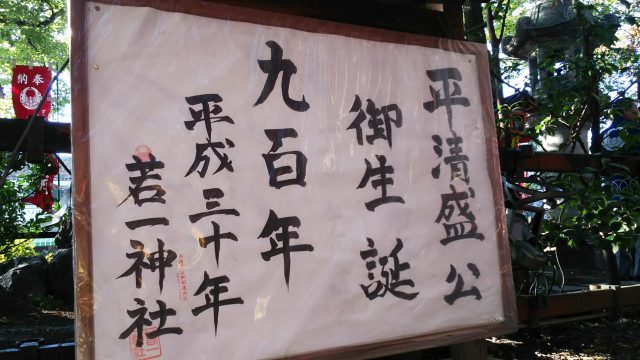 平清盛公
御生誕
九百年
平成三十年
若一神社
納奉